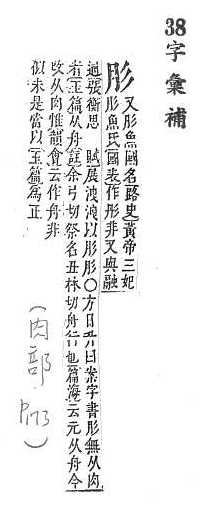 38字彙補
肜
又肜魚國名路史黃帝三妃
肜魚氏國表作彤非又與融
通張衡思 賦展洩洩以肜肜○方日升曰案字書肜無从肉
者玉篇从舟註余弓切祭名丑林切舟行也篇海云元从舟今
改从肉惟韻會云作舟非
似未是當以玉篇為正
(肉部 P.173)